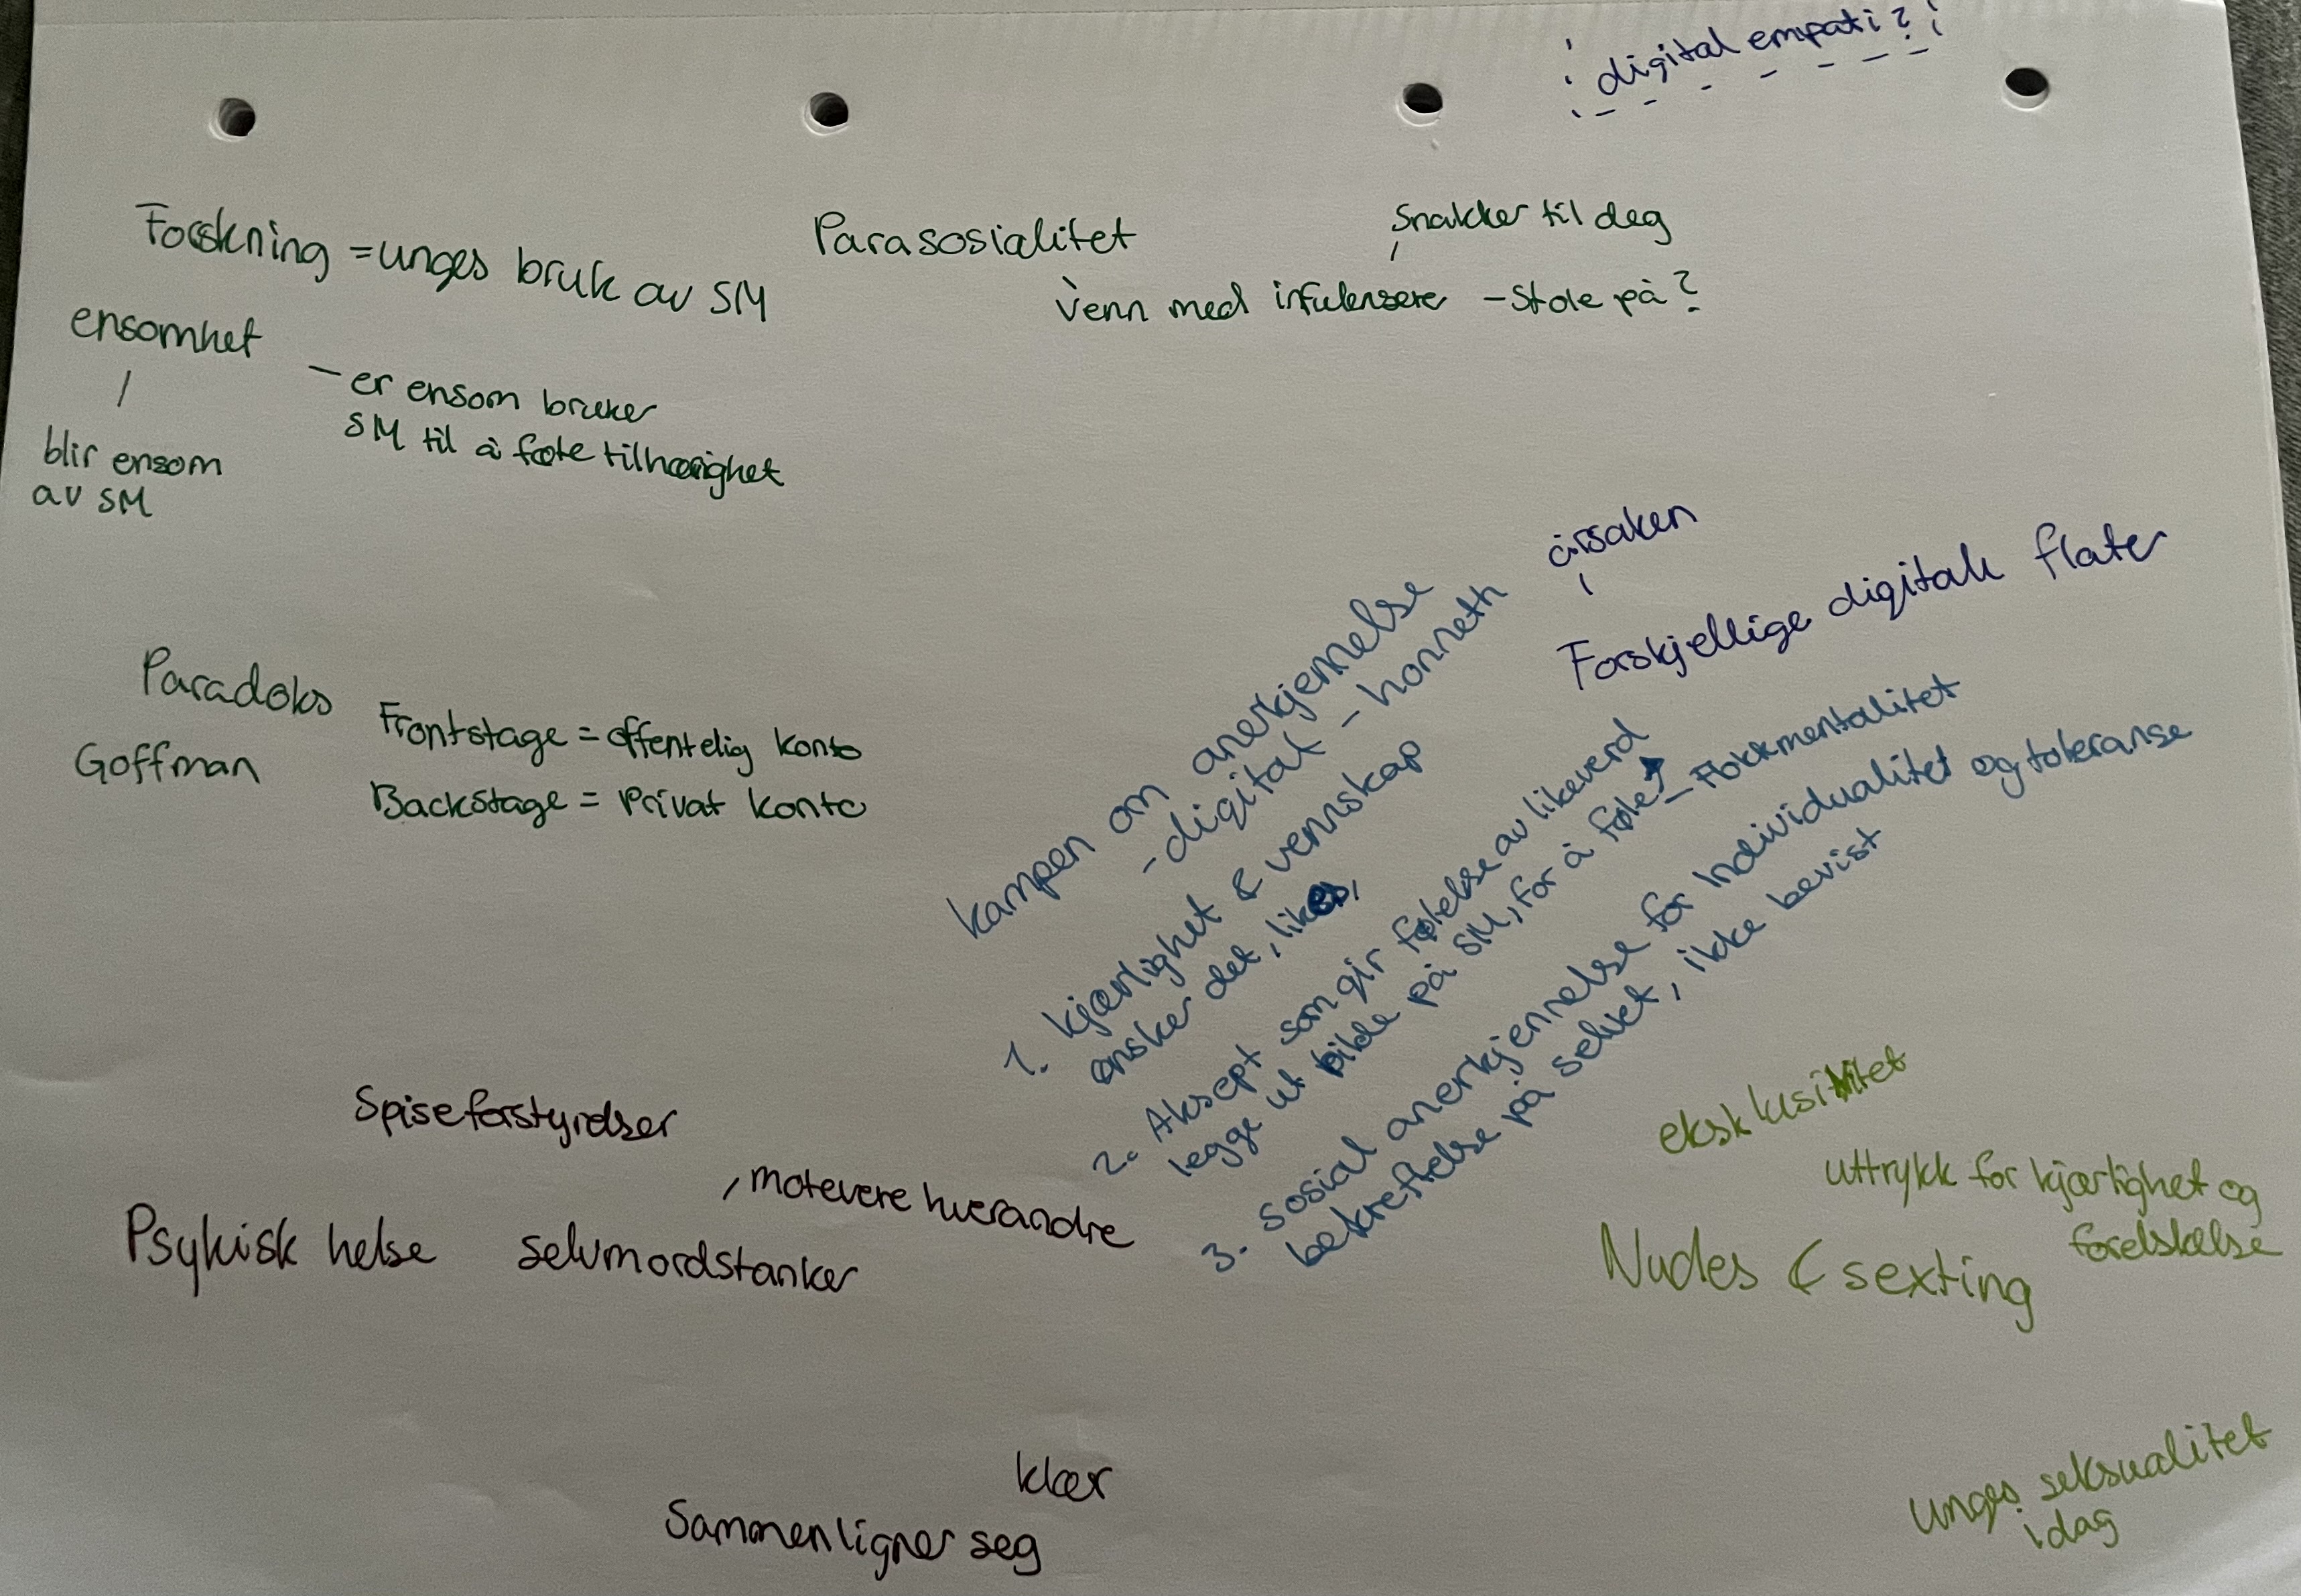 digital empati?
Forskning = unges bruk av SM
ensomhet
- er ensom bruker
SM til å føle tilhørighet
blir ensom
av SM
Parasosialitet
Snakker til deg
Venn med infulensere - Stole på?
årsaken
Forskjellige digitale flater
Paradoks
Goffman
Frontstage = offentelig konto
Backstage = Privat konto
kampen om anerkjennelse
- digital - honneth
1. kjærlighet & vennskap
ønsker det, likes,
2. Aksept som gir følelse av likeverd
legge ut bilde på SM, for å føle - Flokkmentalitet
3. sosial anerkjennelse for individualitet og toleranse
bekreftelse på selvet, ikke bevist
Spiseforstyrrelser
, motevere hverandre
Psykisk helse selvmordstanker
eksklusivitet
uttrykk for kjærlighet og
forelskelse
Nudes & sexting
klær
Sammenligner seg
unges seksualitet
idag